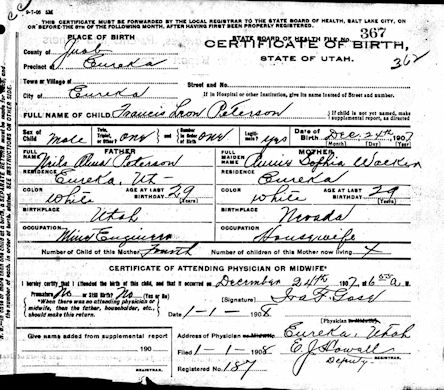 9-7-06 53K
THIS CERTIFICATE MUST BE FORWARDED BY THE LOCAL REGISTRAR TO THE STATE BOARD OF HEALTH, SALT LAKE CITY, ON
OR BEFORE THE 5TH OF THE FOLLOWING MONTH, AFTER HAVING FIRST BEEN PROPERLY REGISTERED.
PLACE OF BIRTH
STATE BOARD OF HEALTH FILE No. 367
County of Juab
CERTIFICATE OF BIRTH,
Precinct of Eureka
STATE OF UTAH.
362
Town or Village of
Street and No.
City of Eureka
If in Hospital or other Institution, give its name instead of Street and number.
FULL NAME OF CHILD Francis Leon Peterson
If child is not yet named, make supplemental report, as directed
Sex of Child Male
Twin, Triplet, or Other? one and Number in Order of Birth one
Legitimate? yes
Date of Birth Dec. 24th, 1907
(Month) (Day) (Year)
FATHER
MOTHER
FULL NAME Nils Alma Peterson
FULL MAIDEN NAME Annie Sophia
RESIDENCE Eureka, Ut-
RESIDENCE Eureka
COLOR White AGE AT LAST BIRTHDAY 29 (Years)
COLOR White AGE AT LAST BIRTHDAY 29 (Years)
BIRTHPLACE Utah
BIRTHPLACE Nevada
OCCUPATION Mine Engineer
OCCUPATION Housewife
Number of Child of this Mother Fourth
Number of children of this Mother now living 4
CERTIFICATE OF ATTENDING PHYSICIAN OR MIDWIFE
I hereby certify that I attended the birth of this child, and that it occurred on December 24th 1907, at 6 30 a. M.
Premature No or Still Birth? No (Yes or No)
*When there was no attending physician or midwife, then the father, householder, etc., should make this return.
(Signature)
1-1-1908
(Physician or Midwife)
Give name added from supplemental report
Address of Physician or Midwife Eureka, Utah
190
Filed 1-1-1908 E.J. Howell
REGISTRAR.
Deputy REGISTRAR.
Registered No. 187